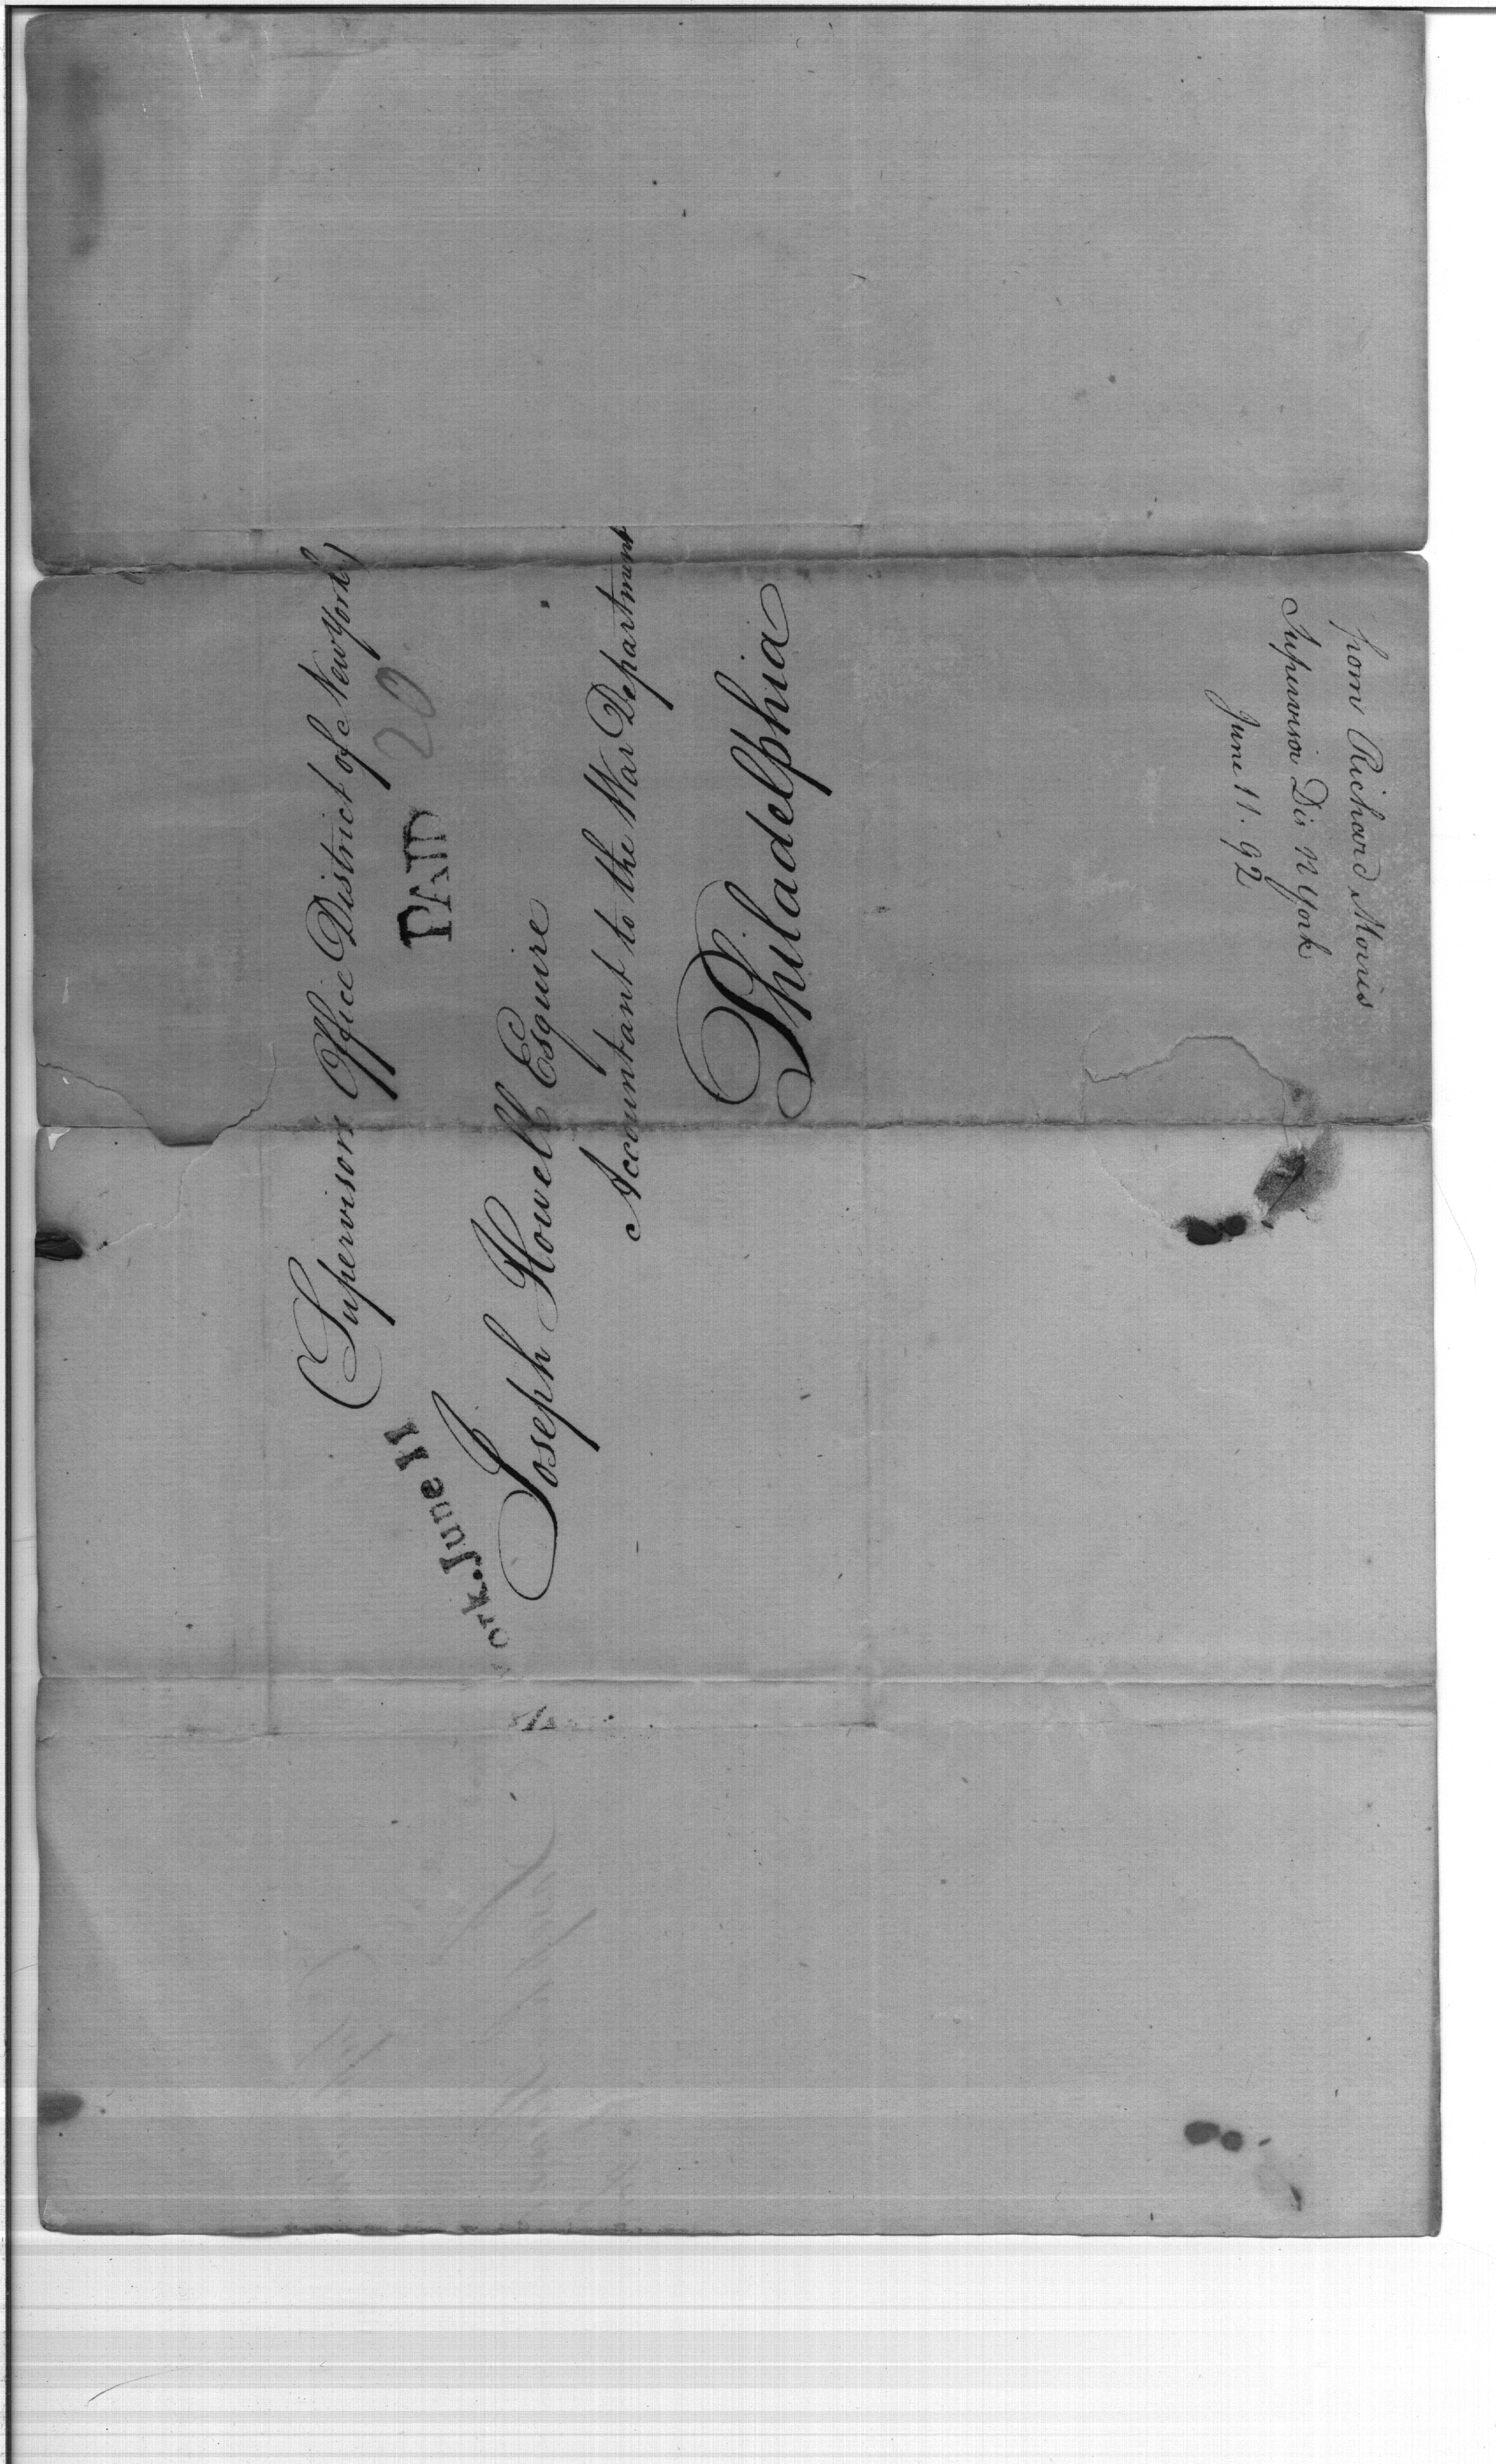 (Supervisors Office District of New York)
PAID 20
ork. June 11
Joseph Howell Esquire
Accountant to the War Department
Philadelphia
from Richard Morris
Supervisor Dis N York
June 11. 92